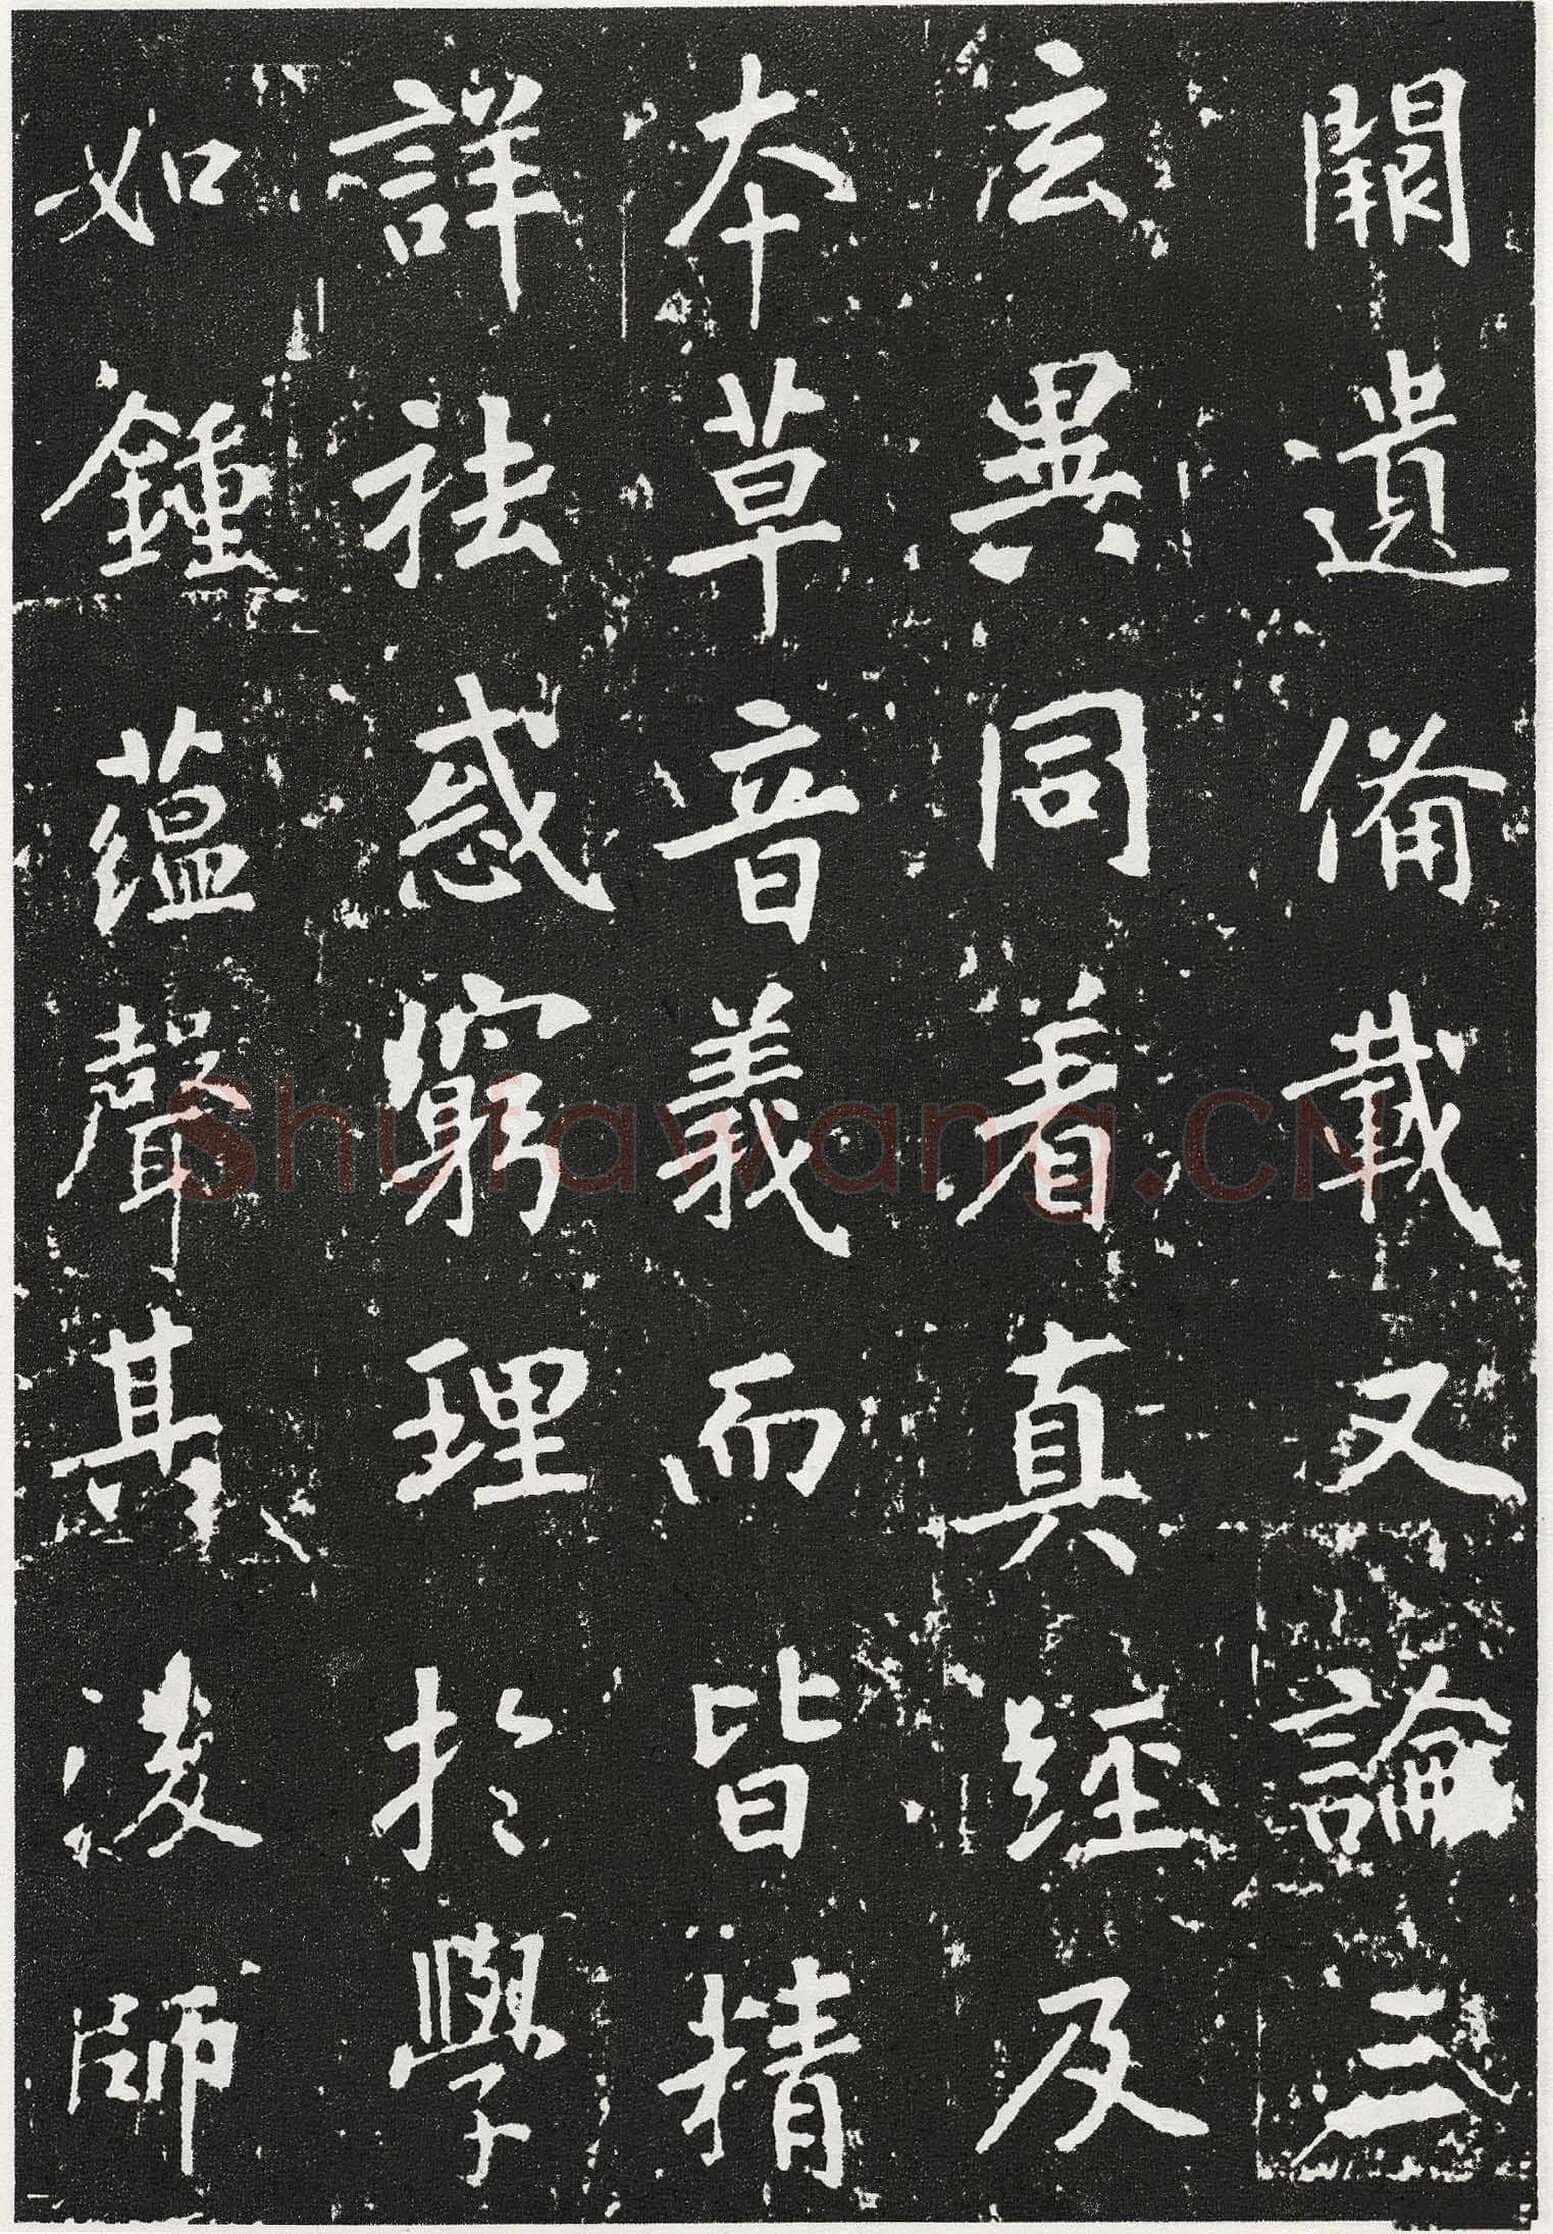 闕遺備載又論三
玄異同著真經及
本草音義而皆精
詳祛惑窮理於學
如鍾蘊聲其後師
Shufawang.CN